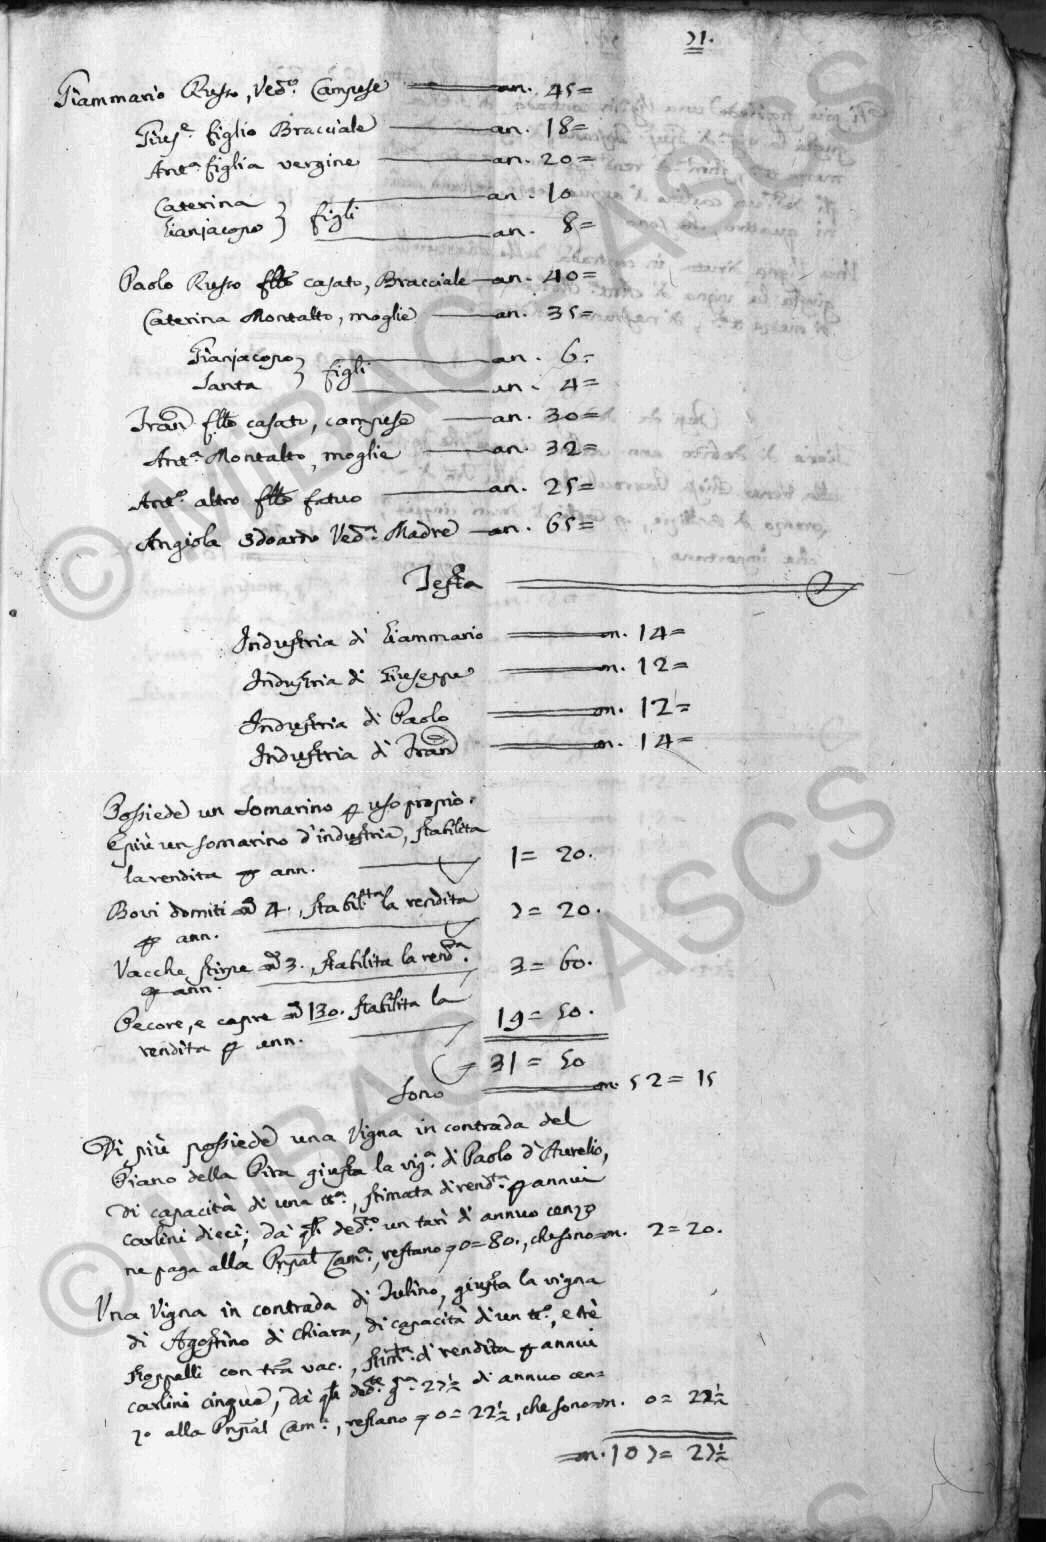 71.
Giammario Russo, Ved.º Campese an. 45=
Gius.e figlio Bracciale an. 18=
Ant.a figlia vergine an. 20=
Caterina } figli an. 10
Gianjacopo } an. 8=
Paolo Russo fllo casato, Bracciale an. 40=
Caterina Montalto, moglie an. 35=
Gianjacopo } figli an. 6=
Santa } an. 4=
Fran.co fllo casato, campese an. 30=
Ant.a Montalto, moglie an. 32=
Ant.o altro fllo fatuo an. 25=
Angiola Edoardo Ved.a Madre an. 65=
Testa
Industria di Giammario on. 14=
Industria di Giuseppe on. 12=
Industria di Paolo on. 12=
Industria di Fran.co on. 14=
Possiede un somarino p uso proprio.
E più un somarino d'industria, stabilita
la rendita p ann. 1= 20.
Bovi domiti nº 4., stabil.ta la rendita
p ann. 7= 20.
Vacche stirpe nº 3., stabilita la rend.a
p ann. 3= 60.
Pecore, e capre nº 130. stabilita la
rendita p ann. 19= 50.
31= 50
Sono on. 52= 15
Di più possiede una vigna in contrada del
Piano della Pira giusta la vig.a di Paolo d'Aurelio,
di capacità di una tt.a, stimata di rend.ta p annui
carlini dieci; da qli ded.to un tarì di annuo cenzo
ne paga alla Pnpal Cam.a, restano p 0=80., che sono on. 2=20.
Una Vigna in contrada di Iulino, giusta la vigna
di Agostino di Chiara, di capacità di un tt.o, e trè
stoppelli con trà vac., stim.ta di rendita p annui
carlini cinque, da qli ded.te g.na 27½ di annuo cen=
zo alla Pnpal Cam.a, restano p 0=22½, che sono on. 0= 22½
on. 107= 27½
© MIBAC - ASCS
© MIBAC - ASCS